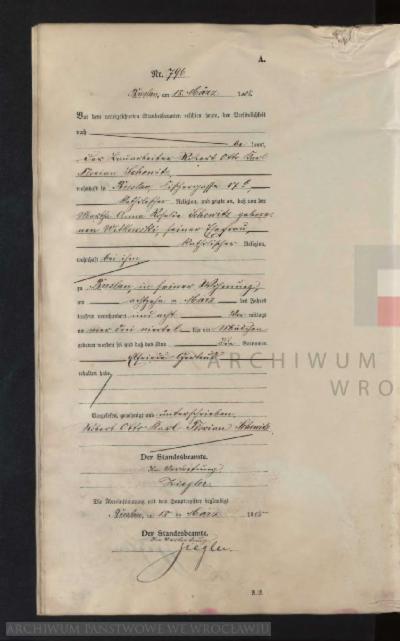 A.
Nr. 796
Breslau, am 18. März 190
Vor dem unterzeichneten Standesbeamten erschien heute, der Persönlichkeit
nach
be kannt,
der Robert Otto Karl
Florian
wohnhaft in Breslau,
katholischer Religion, und zeigte an, daß von der
Martha Anna geborenen
seiner Ehefrau,
katholischer Religion,
wohnhaft bei ihm
zu Breslau, in seiner Wohnung,
am achtzehn März des Jahres
tausend neunhundert und acht mittags
um vier drei viertel Uhr ein Mädchen
geboren worden sei und daß das Kind die Vornamen
Elfriede Gertrud
erhalten habe.
Vorgelesen, genehmigt und unterschrieben
Robert Otto Karl Florian
Der Standesbeamte.
In Vertretung
Ziegler.
Die Übereinstimmung mit dem Hauptregister beglaubigt
Breslau, am 18 März 190
Der Standesbeamte.
In Vertretung
Ziegler.
ARCHIWUM
WRO
ARCHIWUM PAŃSTWOWE WE WROCŁAWIU